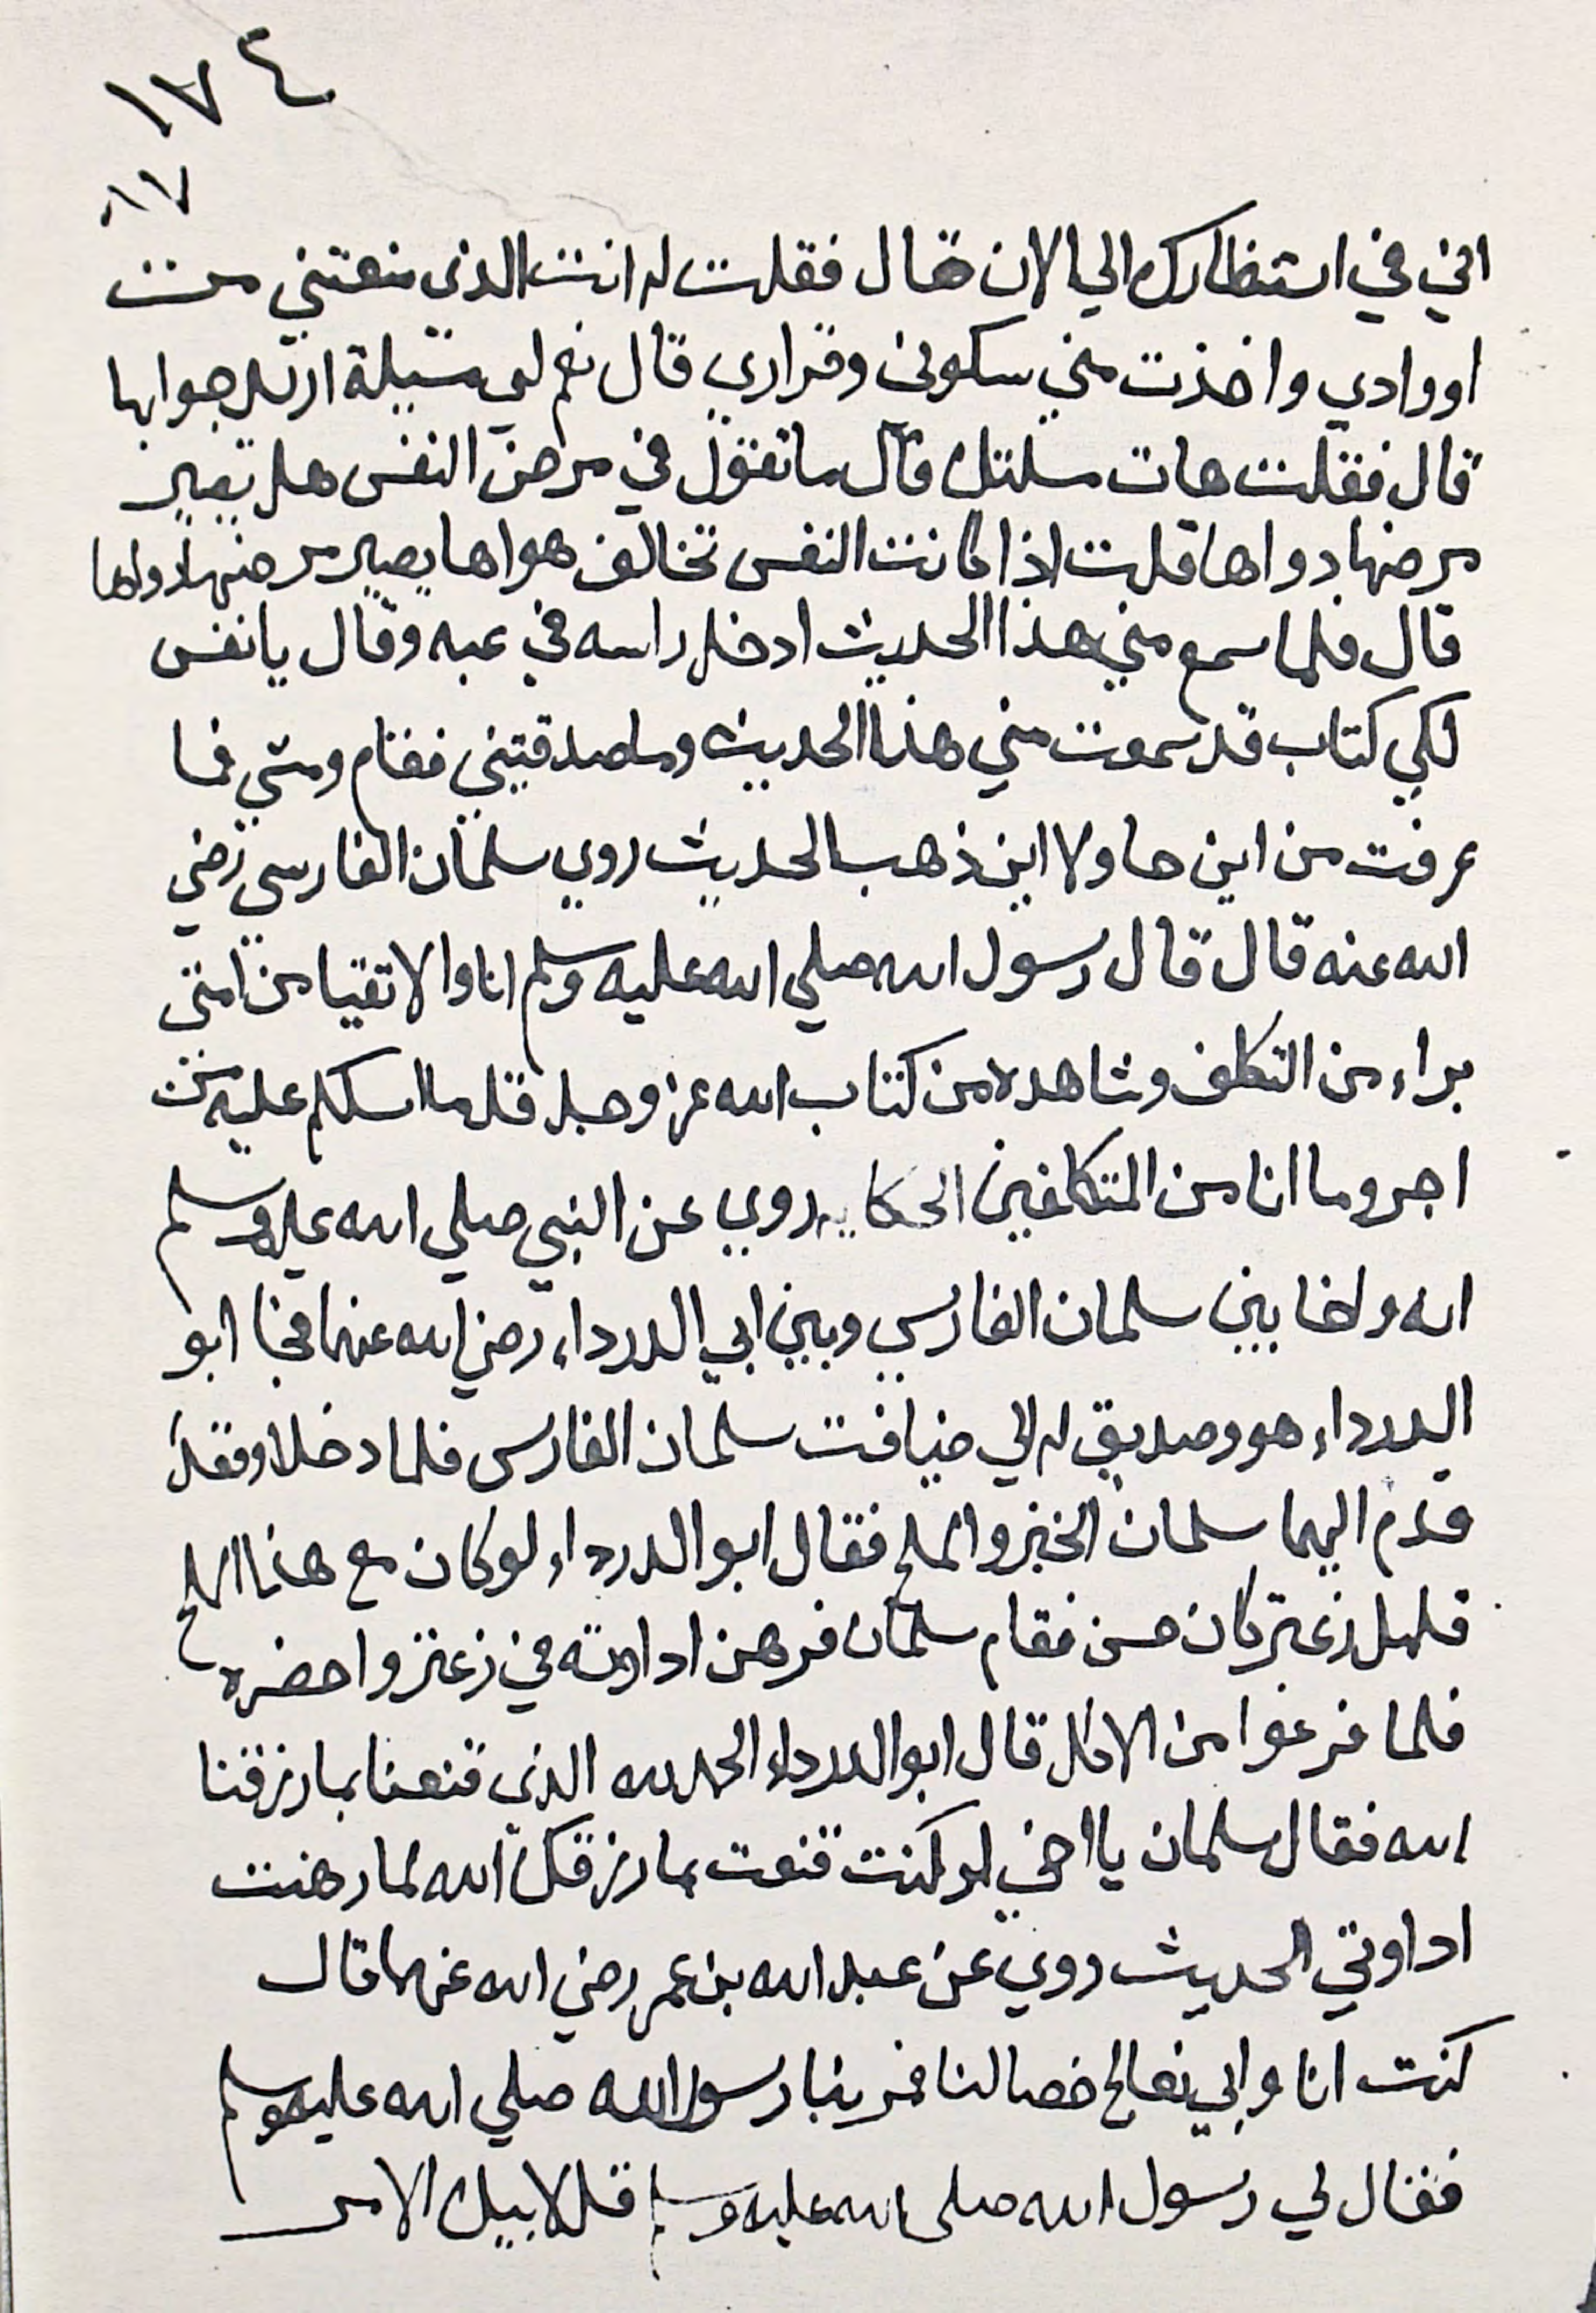 ١٧٤
١٧
اني في انتظارك الي الان قال فقلت له انت الذى منعتني من
اورادي واخذت مني سكونى وقراري قال نعم لي مسيلة اريد جوابها
قال فقلت هات مسلتك قال ما تقول في مرض النفس هل يصير
مرضها دواها قلت اذا كانت النفس تخالف هواها يصير مرضها دواها
قال فلما سمع مني هذا الحديث ادخل راسه في عبه وقال يا نفس
لكي كتاب قد سمعت مني هذا الحديث وما صدقتيني فقام ومشي فما
عرفت من اين جا ولا اين ذهب الحديث روي سلمان الفارسي رضي
الله عنه قال قال رسول الله صلي الله عليه وسلم انا والاتقيا من امتى
براء من التكلف وشاهده من كتاب الله عز وجل قل ما اسلكم عليه من
اجر وما انا من المتكلفين الحكايه روي عن النبي صلي الله عليه وسلم
انه واخا بين سلمان الفارسي وبين ابي الدرداء رضي الله عنهما فجا ابو
الدرداء هو وصديق له الي ضيافت سلمان الفارسي فلما دخلا وقعدا
قدم اليهما سلمان الخبز والملح فقال ابو الدرداء لو كان مع هذا الملح
قليل زعتر كان حسن فقام سلمان فرهن اداوته في زعتر واحضره
فلما فرغوا من الاكل قال ابو الدرداء الحمد لله الذى قنعنا بما رزقنا
الله فقال سلمان يا اخي لو كنت قنعت بما رزقك الله لما رهنت
اداوتي الحديث روي عن عبد الله بن عمر رضي الله عنهما قال
كنت انا وابي نعالج خصا لنا فمر بنا رسول الله صلي الله عليه وسلم
فقال لي رسول الله صلى الله عليه وسلم قل لابيك الامر